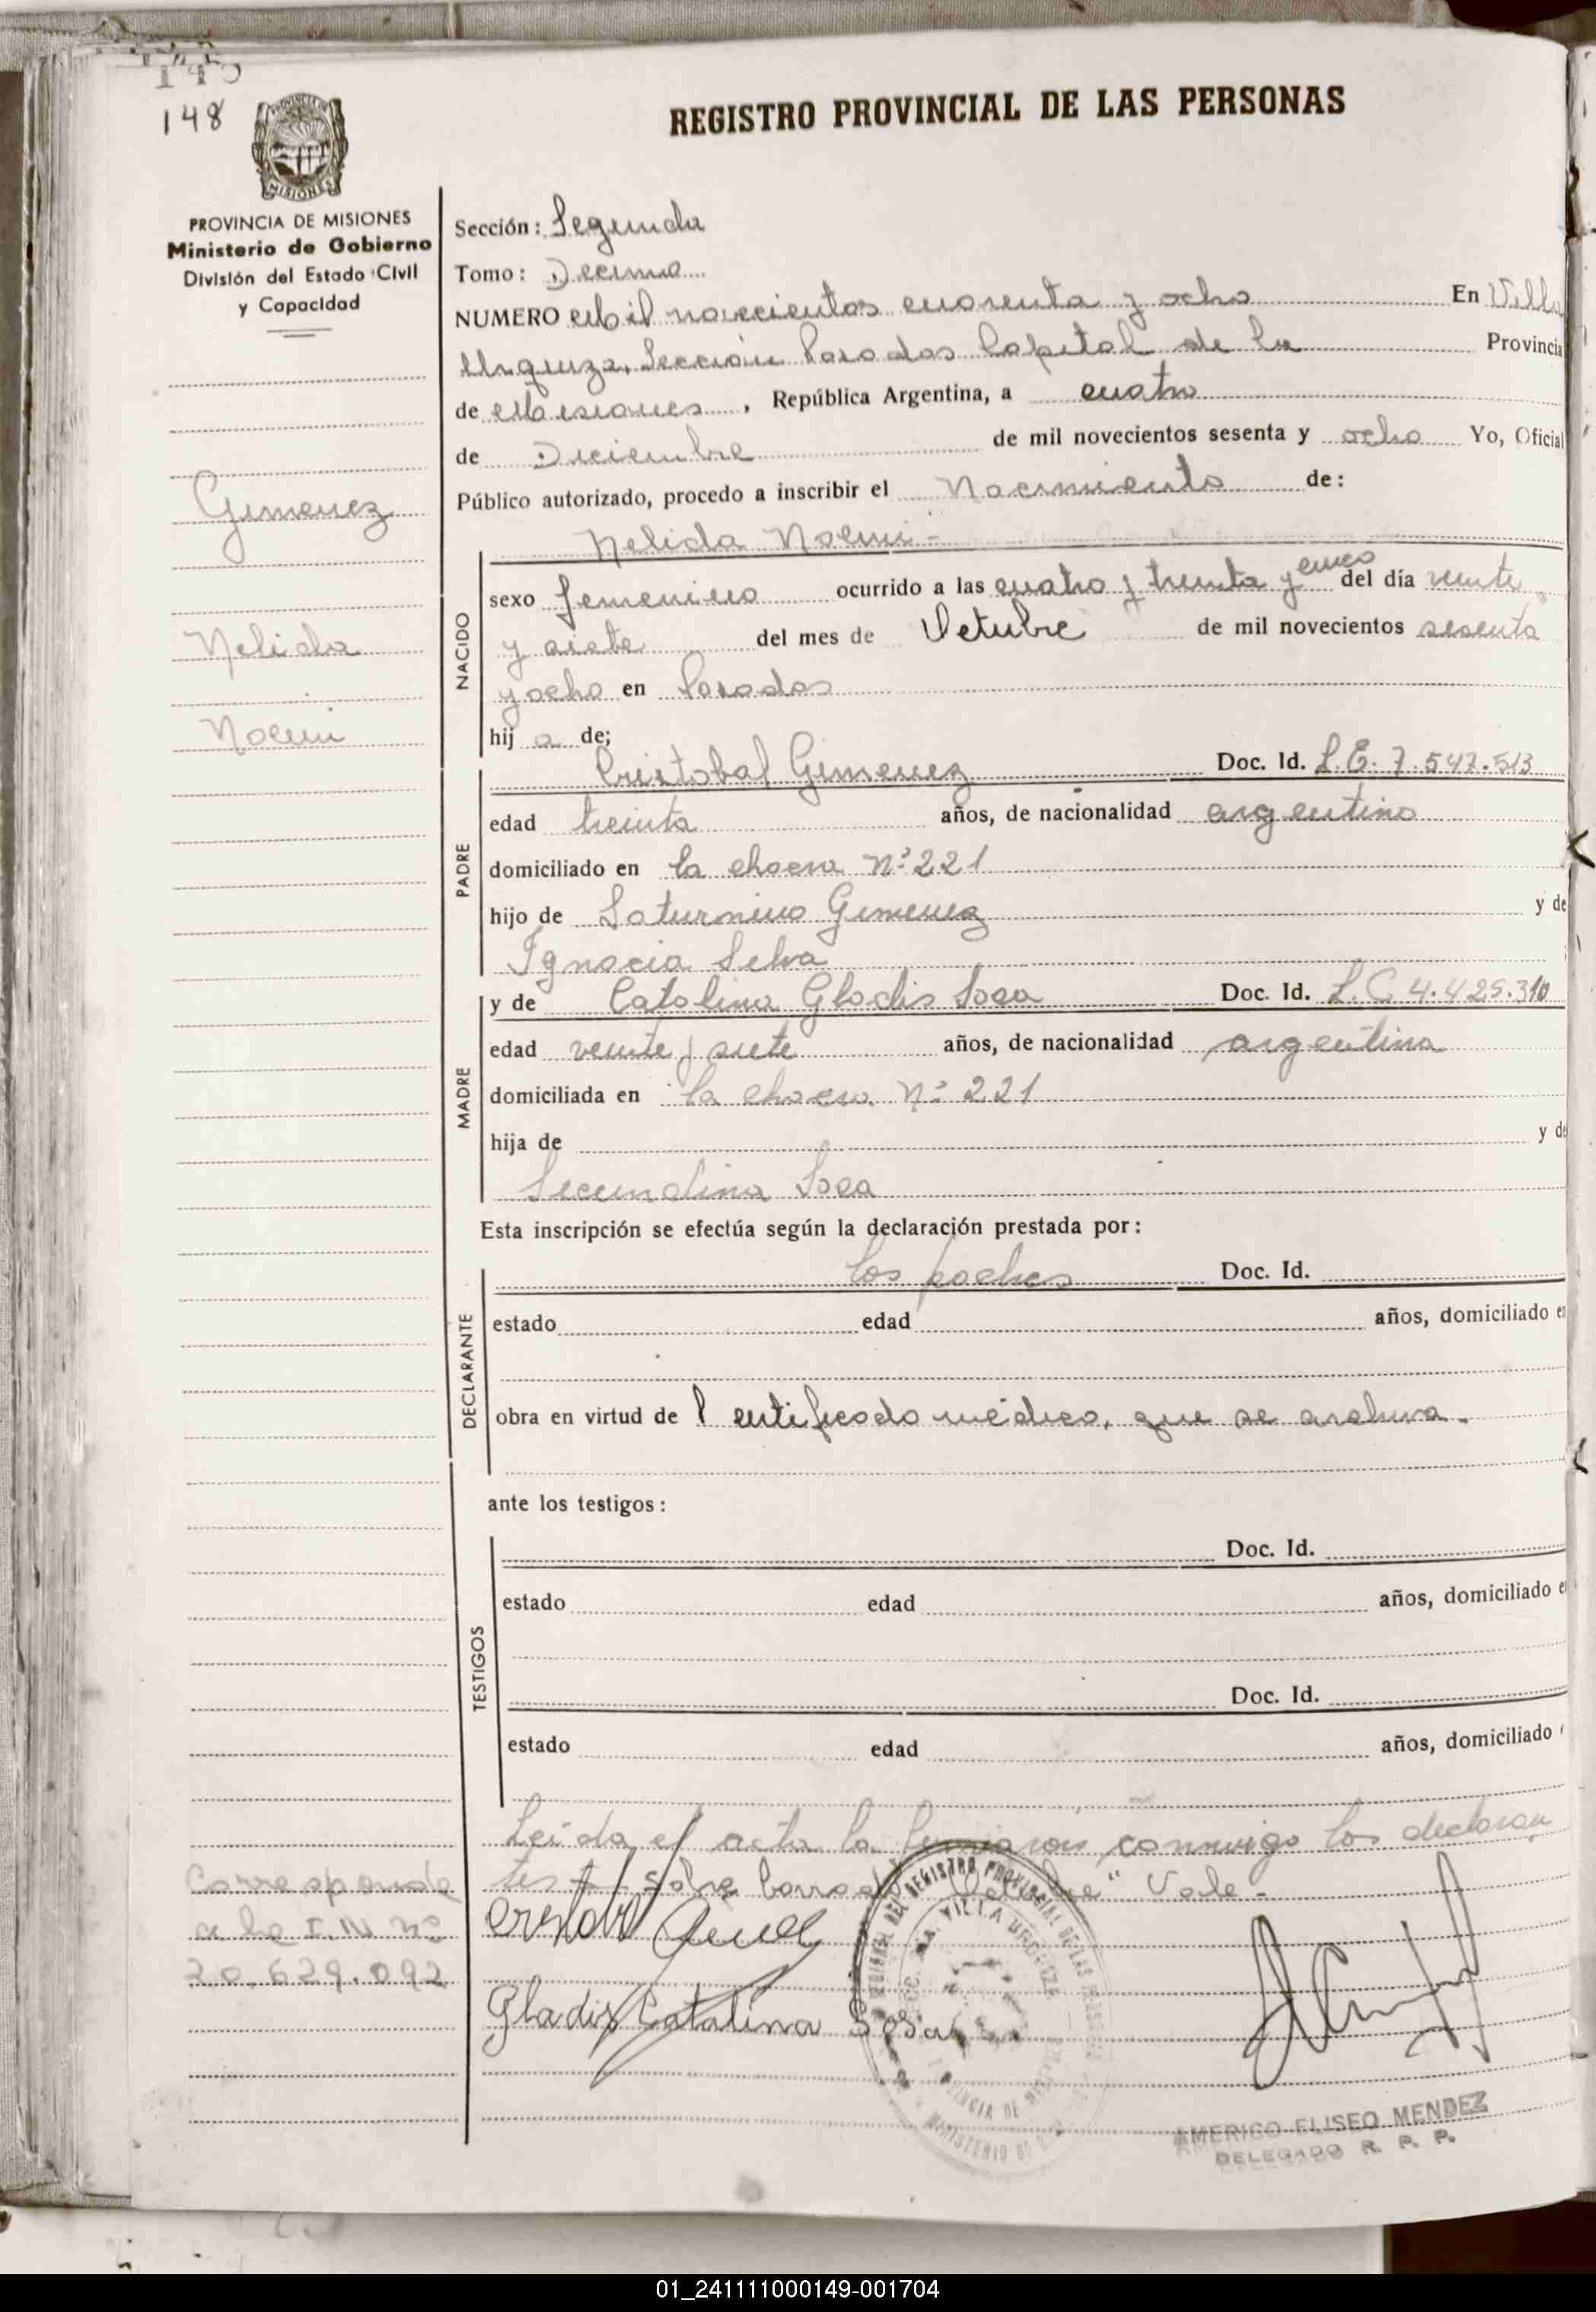 148
PROVINCIA DE MISIONES
Ministerio de Gobierno
División del Estado Civil
y Capacidad
REGISTRO PROVINCIAL DE LAS PERSONAS
Sección: Segunda
Tomo: Decimo
NUMERO Mil novecientos cuarenta y ocho En Villa
Urquiza, Sección Posadas Capital de la Provincia
de Misiones, República Argentina, a cuatro
de Diciembre de mil novecientos sesenta y ocho Yo, Oficial
Público autorizado, procedo a inscribir el Nacimiento de:
Nelida Noemi-
Gimenez
Nelida
Noemi
NACIDO
sexo femenino ocurrido a las cuatro y treinta y cinco del día veinte
y siete del mes de Octubre de mil novecientos sesenta
y ocho en Posadas
hij a de;
PADRE
Cristobal Gimenez Doc. Id. L.E. 7.547.513
edad treinta años, de nacionalidad argentino
domiciliado en la chacra Nº 221
hijo de Saturnino Gimenez y de
Ignacia Selva
MADRE
y de Catalina Gladis Sosa Doc. Id. L.C 4.425.310
edad veinte y siete años, de nacionalidad argentina
domiciliada en la chacra Nº 221
hija de y de
Secundina Sosa
Esta inscripción se efectúa según la declaración prestada por:
DECLARANTE
los padres Doc. Id.
estado edad años, domiciliado en
obra en virtud de Certificado médico, que se archiva.
ante los testigos:
TESTIGOS
Doc. Id.
estado edad años, domiciliado e
Doc. Id.
estado edad años, domiciliado
Leida el acta la firmaron conmigo los declaran
tes sobre borrado "Octubre" Vale-
Corresponde
a la I.N. Nº
20.629.092
Gladis Catalina Sosa
AMERICO ELISEO MENDEZ
DELEGADO R. P. P.
01_241111000149-001704